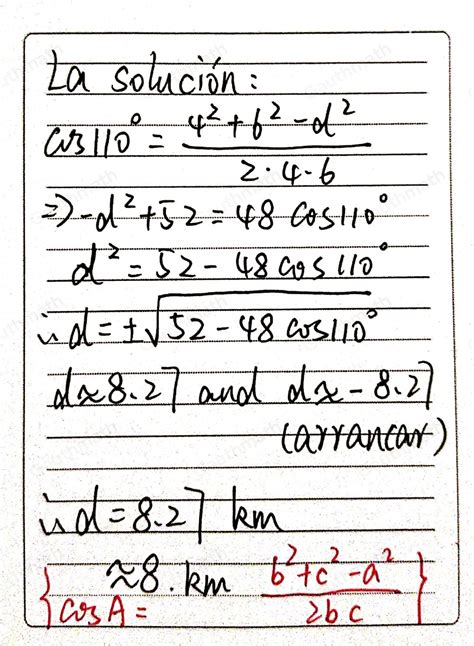 La solución:
cos110° = (4² + 6² - d²) / (2·4·6)
⇒ -d² + 52 = 48 cos110°
d² = 52 - 48 cos110°
∴ d = ±√(52 - 48 cos110°)
d≈8.27 and d≈-8.27
(arrancar)
∴ d = 8.27 km
≈8.km
{cosA = (b² + c² - a²) / (2bc)}